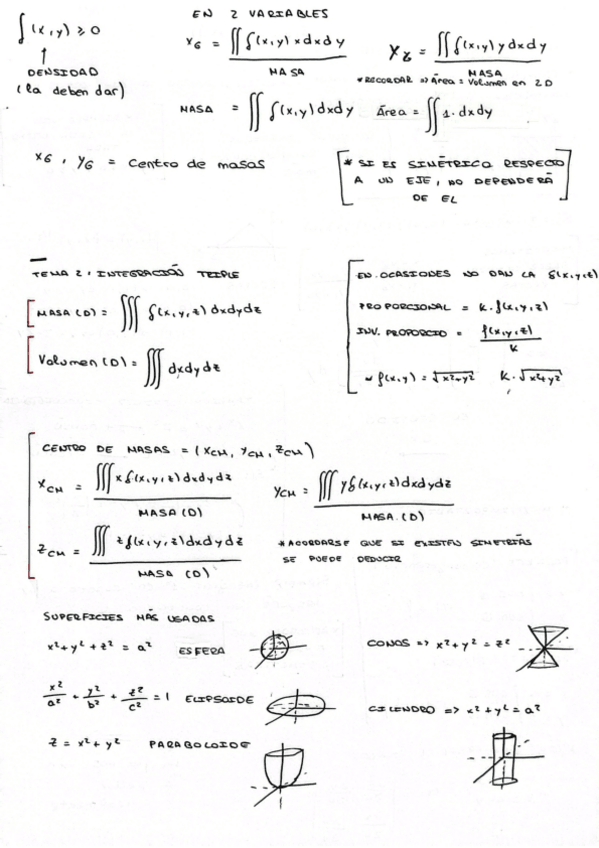 f(x,y) ≥ 0
↑
DENSIDAD
(la deben dar)
EN 2 VARIABLES
x_G = ∬ f(x,y) x dx dy / MASA
y_G = ∬ f(x,y) y dx dy / MASA
* RECORDAR => Área = Volumen en 2D
MASA = ∬ f(x,y) dx dy
Área = ∬ 1· dx dy
x_G , y_G = Centro de masas
* SI ES SIMÉTRICO RESPECTO
A UN EJE, NO DEPENDERÁ
DE EL
TEMA 2: INTEGRACIÓN TRIPLE
MASA (D) = ∭ f(x,y,z) dx dy dz
Volumen (D) = ∭ dx dy dz
EN OCASIONES NO DAN LA f(x,y,z)
PROPORCIONAL = K · f(x,y,z)
INV. PROPORCIO = f(x,y,z) / K
f(x,y) = √x²+y² K·√x²+y²
CENTRO DE MASAS = (x_CM, y_CM, z_CM)
x_CM = ∭ x f(x,y,z) dx dy dz / MASA (D)
y_CM = ∭ y f(x,y,z) dx dy dz / MASA. (D)
z_CM = ∭ z f(x,y,z) dx dy dz / MASA (D)
* ACORDARSE QUE SI EXISTEN SIMETRÍAS
SE PUEDE DEDUCIR
SUPERFICIES MÁS USADAS
x² + y² + z² = a² ESFERA
CONOS => x² + y² = z²
x²/a² + y²/b² + z²/c² = 1 ELIPSOIDE
CILINDRO => x² + y² = a²
z = x² + y² PARABOLOIDE